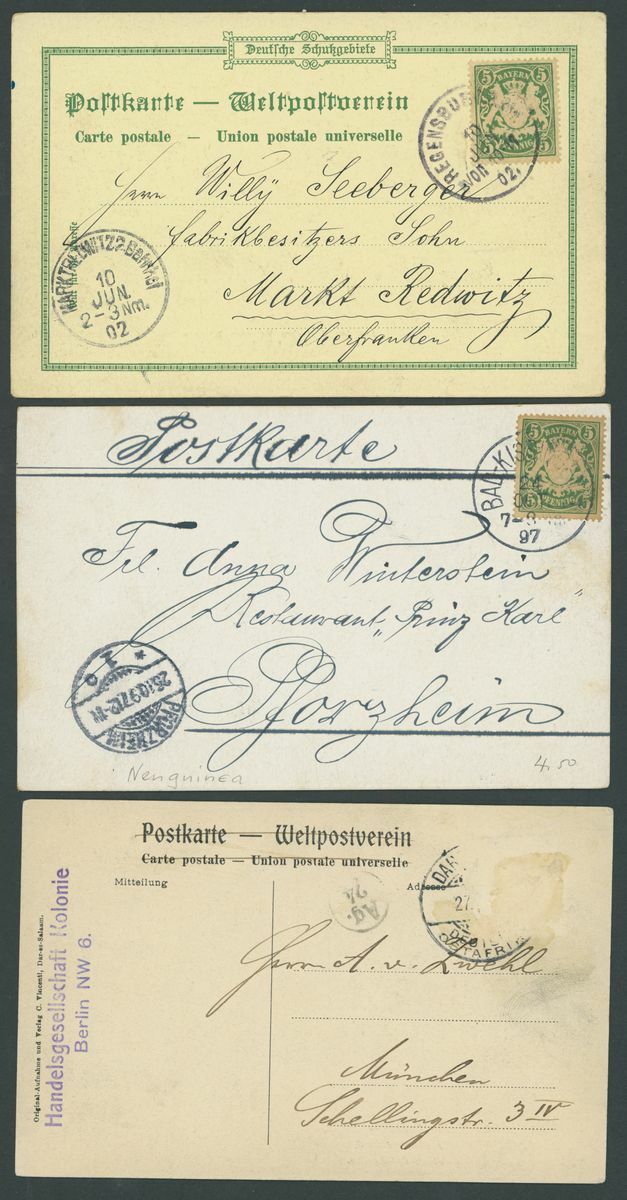 Deutsche Schutzgebiete
Postkarte — Weltpostverein
Carte postale — Union postale universelle
5 BAYERN 5
5 PFENNIG 5
REGENSBURG
10
JUN
02.
Herrn Willy Seeberger
Fabrikbesitzers Sohn
Markt Redwitz
Oberfranken
MARKTREDWITZ 2. Bahnhof
10
JUN.
2-3 Nm.
02
Postkarte
5 BAYERN 5
5 PFENNIG 5
7-8
97
Frl. Anna Winterstein
Restaurant „Prinz Karl"
Pforzheim
PFORZHEIM
26.10.97.
Neuguinea
4.50
Postkarte — Weltpostverein
Carte postale — Union postale universelle
Mitteilung
Adresse
Ag.
24
27.
OSTAFRIKA
Herrn A. v. Zwehl
München
Schellingstr. 3 IV
Original-Aufnahme und Verlag C. Vincenti, Dar-es-Salaam.
Handelsgesellschaft Kolonie
Berlin NW 6.